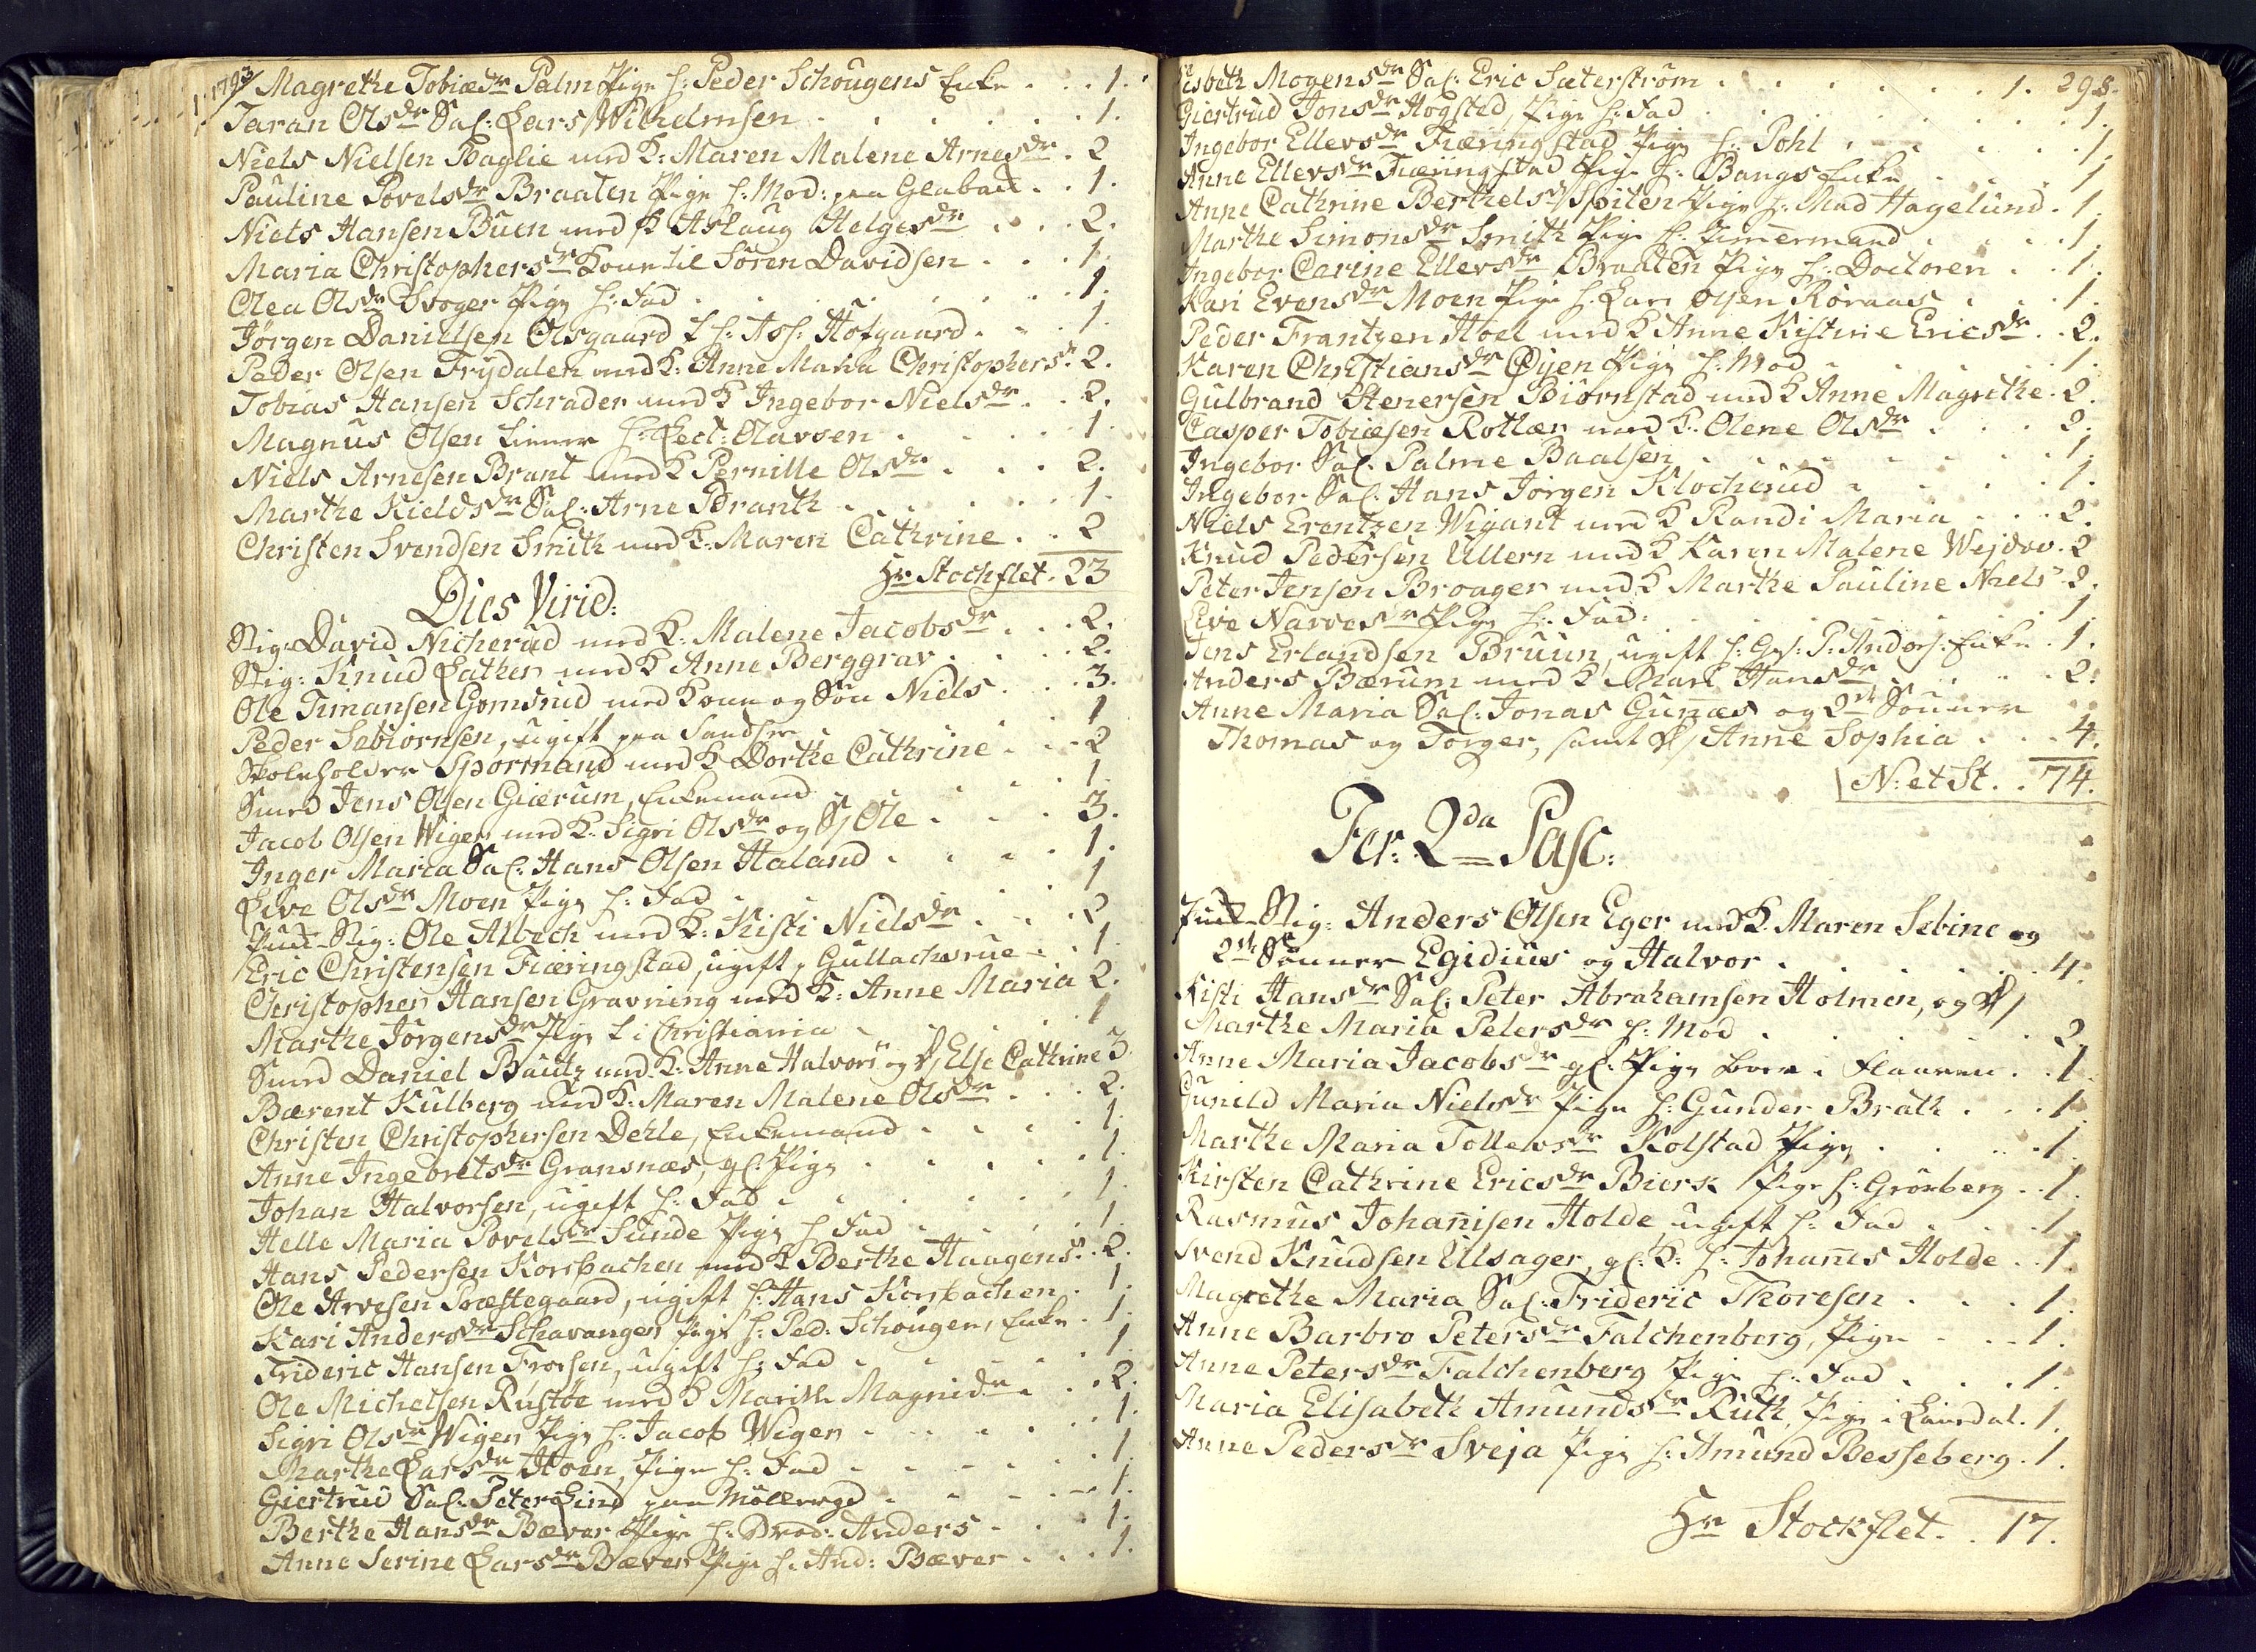 1793/ Magrethe Tobiæsdr Palm Pige h: Peder Schougens Enke . . . 1.
Taran Olsdr Sal: Lars Wilhelmsen . . . 1.
Niels Nielsen Baglie med K: Maren Malene Arnesdr . 2
Pauline Povelsdr Braaten Pige h: Mod: paa Glabak . . 1.
Niels Hansen Buen med K Aslaug Helgesdr . . . 2.
Maria Christophersdr Kone til Søren Davidsen . . . 1.
Olea Olsdr Svoger Pige h: Fad . . . 1.
Jørgen Danielsen Olsgaard t h: Ass: Hofgaard . . . 1
Peder Olsen Frydalen med K: Anne Maria Christophersdr 2.
Tobias Hansen Schrader med K Ingebor Nielsdr . . 2.
Magnus Olsen tiener h: Lect: Olavsen . . . 1.
Niels Arnesen Brant med K Pernille Olsdr . . . 2.
Marthe Kieldsdr Sal: Arne Branth . . . 1.
Christen Svendsen Smith med K: Maren Cathrine . . 2
Hr Stochflet . 23
Dies Virid:
Stig: David Nicherud med K: Malene Jacobsdr . . . 2.
Stig: Knud Lather med K Anne Berggrav . . . 2.
Ole Timansen Gomsrud med Kone og Søn Niels . . . 3.
Peder Sebiørnsen, ugift paa Sandsm . . . 1
Skoleholder Spormand med K Dorthe Cathrine . . . 2
Smed Jens Olsen Giærum, Enkemand . . . 1.
Jacob Olsen Wigen med K: Sigri Olsdr og S/ Ole . . . 3.
Inger Maria Sal: Hans Olsen Haland . . . 1.
Live Olsdr Moen Pige h: Fad . . . 1
Stig: Ole Albech med K: Kisti Nielsdr . . . 2
Eric Christensen Fiæringstad, ugift, Gullachsrue . . 1.
Christopher Hansen Gravning med K: Anne Maria 2.
Marthe Jørgensdr Pige t i Christiania . . . 1
Smed Daniel Bautz med K: Anne Halvors og D/ Else Cathrine 3
Bærent Kulberg med K: Maren Malene Olsdr . . . 2.
Christen Christophersen Dehle, Enkemand . . . 1.
Anne Ingebretsdr Gransnæs, gl: Pige . . . 1.
Johan Halvorsen, ugift h: Fad . . . 1.
Helle Maria Povelsdr Sunde Pige h Fad . . . 1.
Hans Pedersen Korsbachen med K Berthe Haagens . . 2.
Ole Arvesen Præstegaard, ugift h: Hans Korsbachen . 1.
Kari Andersdr Schavangen Pige h: Ped: Schougens Enke . 1.
Frideric Hansen Frossen, ugift h: Fad . . . 1
Ole Michelsen Rustøe med K Marith Magnidr . . . 2.
Sigri Olsdr Wigen Pige h: Jacob Wigen . . . 1.
Marthe Larsdr Hoen, Pige h: Fad . . . 1
Giertrud Sal: Peter Lind paa Møllergd . . . 1.
Berthe Hansdr Bæver Pige h: Brod: Anders . . . 1.
Anne Serine Larsdr Bæver Pige h: And: Bæver . . . 1.
Lisbeth Mogensdr Sal: Eric Sæterstrøm . . . 1. 298.
Giertrud Jonsdr Hogsted, Pige h: Fad . . . 1.
Ingebor Ellevsdr Fiæringstad Pige h: Pohl . . . 1.
Anne Ellevsdr Fiæringstad Pige h: Bangs Enke . . . 1.
Anne Cathrine Berthelsdr Spiten Pige h: Mad Hagelund . 1.
Marthe Simonsdr Smith Pige h: Timermand . . . 1.
Ingebor Carine Ellevsdr Braaten Pige h: Doctoren . . 1.
Kari Evensdr Moen Pige h. Lars Olsen Røraas . . . 1.
Peder Frantzen Hoel med K Anne Kistine Ericsdr . . 2.
Karen Christiansdr Øyen Pige h: Mod . . . 1.
Gulbrand Stenersen Biørnstad med K Anne Magrethe . 2.
Casper Tobiæsen Rotlær med K. Olene Olsdr . . . 2.
Ingebor Sal: Palme Baalsen . . . 1.
Ingebor Sal: Hans Jørgen Klocherud . . . 1.
Niels Erentzen Wigant med K Randi Maria . . . 2.
Knud Pedersen Ullern med K Karen Malene Wejdov . 2
Peter Jensen Broager med K Marthe Pauline Niels 2.
Live Narvesdr Pige h: Fad . . . 1.
Jens Erlandsen Bruun, ugift h: P: Anders: Enke . 1.
Anders Bærum med K Mari Hansdr . . . 2.
Anne Maria Sal: Jonas Gunæs og 2de Sønner
Thomas og Torger, samt D/ Anne Sophia . . . 4.
N: et St. . 74.
Fer: 2da Pasc:
Stig: Anders Olsen Eger med K. Maren Sebine og
2de Sønner Egidius og Halvor . . . 4.
Kisti Hansdr Sal: Peter Abrahamsen Holmen, og D/
Marthe Maria Petersdr h: Mod . . . 2.
Anne Maria Jacobsdr gl: Pige boer i Flaaren . . 1.
Gunild Maria Nielsdr Pige h: Gunder Brath . . . 1
Marthe Maria Tollevsdr Kolstad Pige . . . 1.
Kirsten Cathrine Ericsdr Bierk Pige h: Grønberg . . 1.
Rasmus Johanisen Holde ugift h: Fad . . . 1.
Svend Knudsen Ulsager, gl: K: h: Johannes Holde . . 1.
Magrethe Maria Sal: Frideric Thoresen . . . 1.
Anne Barbro Petersdr Falchenberg, Pige . . . 1.
Anne Petersdr Falchenberg Pige h: Fad . . . 1.
Maria Elisabeth Amundsdr Ruth, Pige i Laurdal . 1.
Anne Pedersdr Sveja Pige h: Amund Besseberg . 1.
Hr Stockflet . . 17.